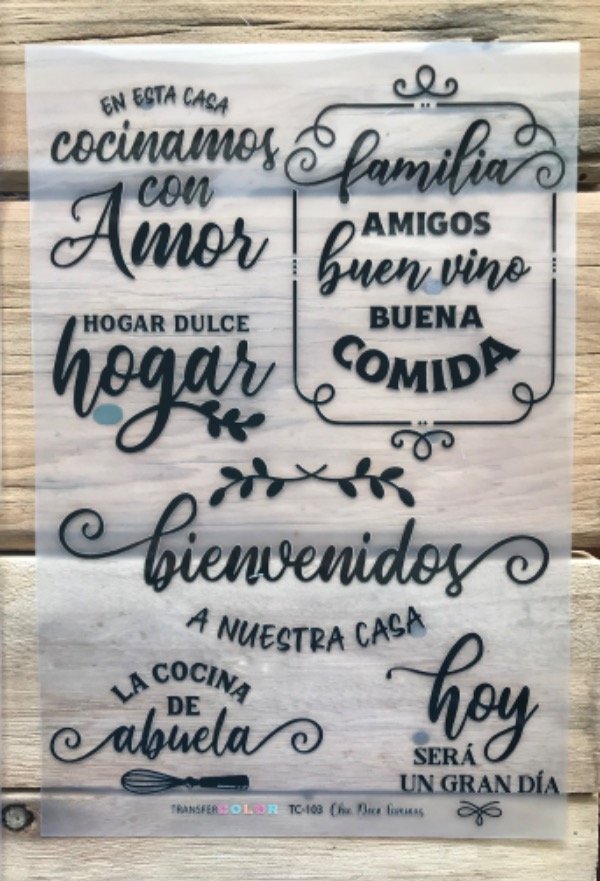 EN ESTA CASA
cocinamos
con
Amor
familia
AMIGOS
buen vino
BUENA
COMIDA
HOGAR DULCE
hogar
bienvenidos
A NUESTRA CASA
LA COCINA
DE
abuela
hoy
SERÁ
UN GRAN DÍA
TRANSFERCOLOR TC-103 Chic Deco